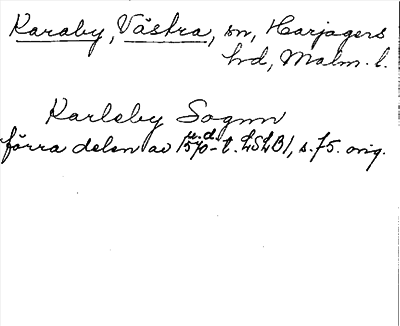 Karaby, Västra, sn, Harjagers
hd, Malm. l.
Karleby Sognn
förra delen av 1570-t. LSLB1, s. 75. orig.
u.d.